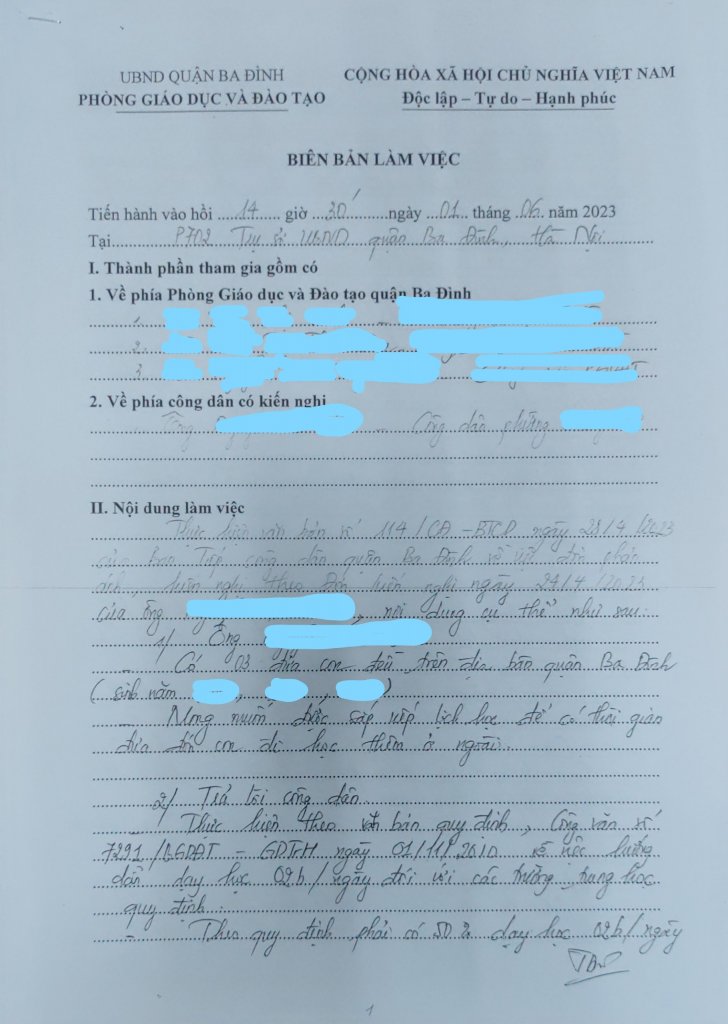 UBND QUẬN BA ĐÌNH
PHÒNG GIÁO DỤC VÀ ĐÀO TẠO
CỘNG HÒA XÃ HỘI CHỦ NGHĨA VIỆT NAM
Độc lập – Tự do – Hạnh phúc
BIÊN BẢN LÀM VIỆC
Tiến hành vào hồi ....14...... giờ ...30'..........ngày ...01... tháng ..06.. năm 2023
Tại............P702 Trụ sở UBND quận Ba Đình, Hà Nội
I. Thành phần tham gia gồm có
1. Về phía Phòng Giáo dục và Đào tạo quận Ba Đình
1.
2.
3.
2. Về phía công dân có kiến nghị
Ông - Công dân phường
II. Nội dung làm việc
Thực hiện văn bản số 114/CA-BTCD ngày 28/4/2023
của Ban Tiếp công dân quận Ba Đình về việc đơn phản
ánh, kiến nghị theo Đơn kiến nghị ngày 24/4/2023
của ông , nội dung cụ thể như sau:
1/ Ông
- Có 03 đứa con đều trên địa bàn quận Ba Đình
( sinh năm , , )
- Mong muốn được sắp xếp lịch học để có thời gian
đưa đón con đi học thêm ở ngoài.
2/ Trả lời công dân.
- Thực hiện theo văn bản quy định, Công văn số
7291/BGDĐT - GDTrH ngày 01/11/2010 về việc hướng
dẫn dạy học 02b/ngày đối với các trường trung học
quy định:
- Theo quy định phải có dạy học 02b/ngày
1